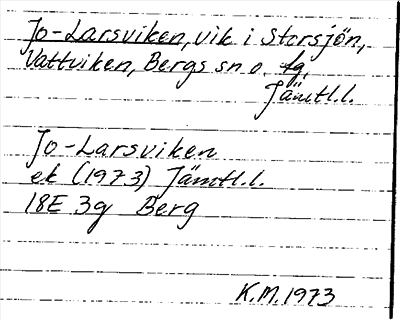 Jo-Larsviken, vik i Storsjön,
Vattviken, Bergs sn o. tg,
Jämtl.l.
Jo-Larsviken
ek (1973) Jämtl.l.
18E 3g Berg
K.M. 1973